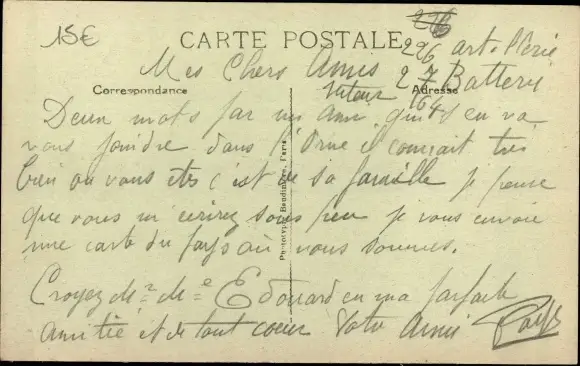 15€
CARTE POSTALE
296 artillerie
Mes Chers Amis 27 Batterie
Correspondance
Adresse
Deux mots par un ami qui s en va
vous joindre dans l'Orne il connait très
bien ou vous etes c'est de sa famille je pense
que vous m'ecrirez sous peu je vous envoie
une carte du pays où nous sommes.
Croyez Mr Me Edouard en ma parfaite
amitié et de tout coeur Votre Ami
Phototypie Baudinière, Paris